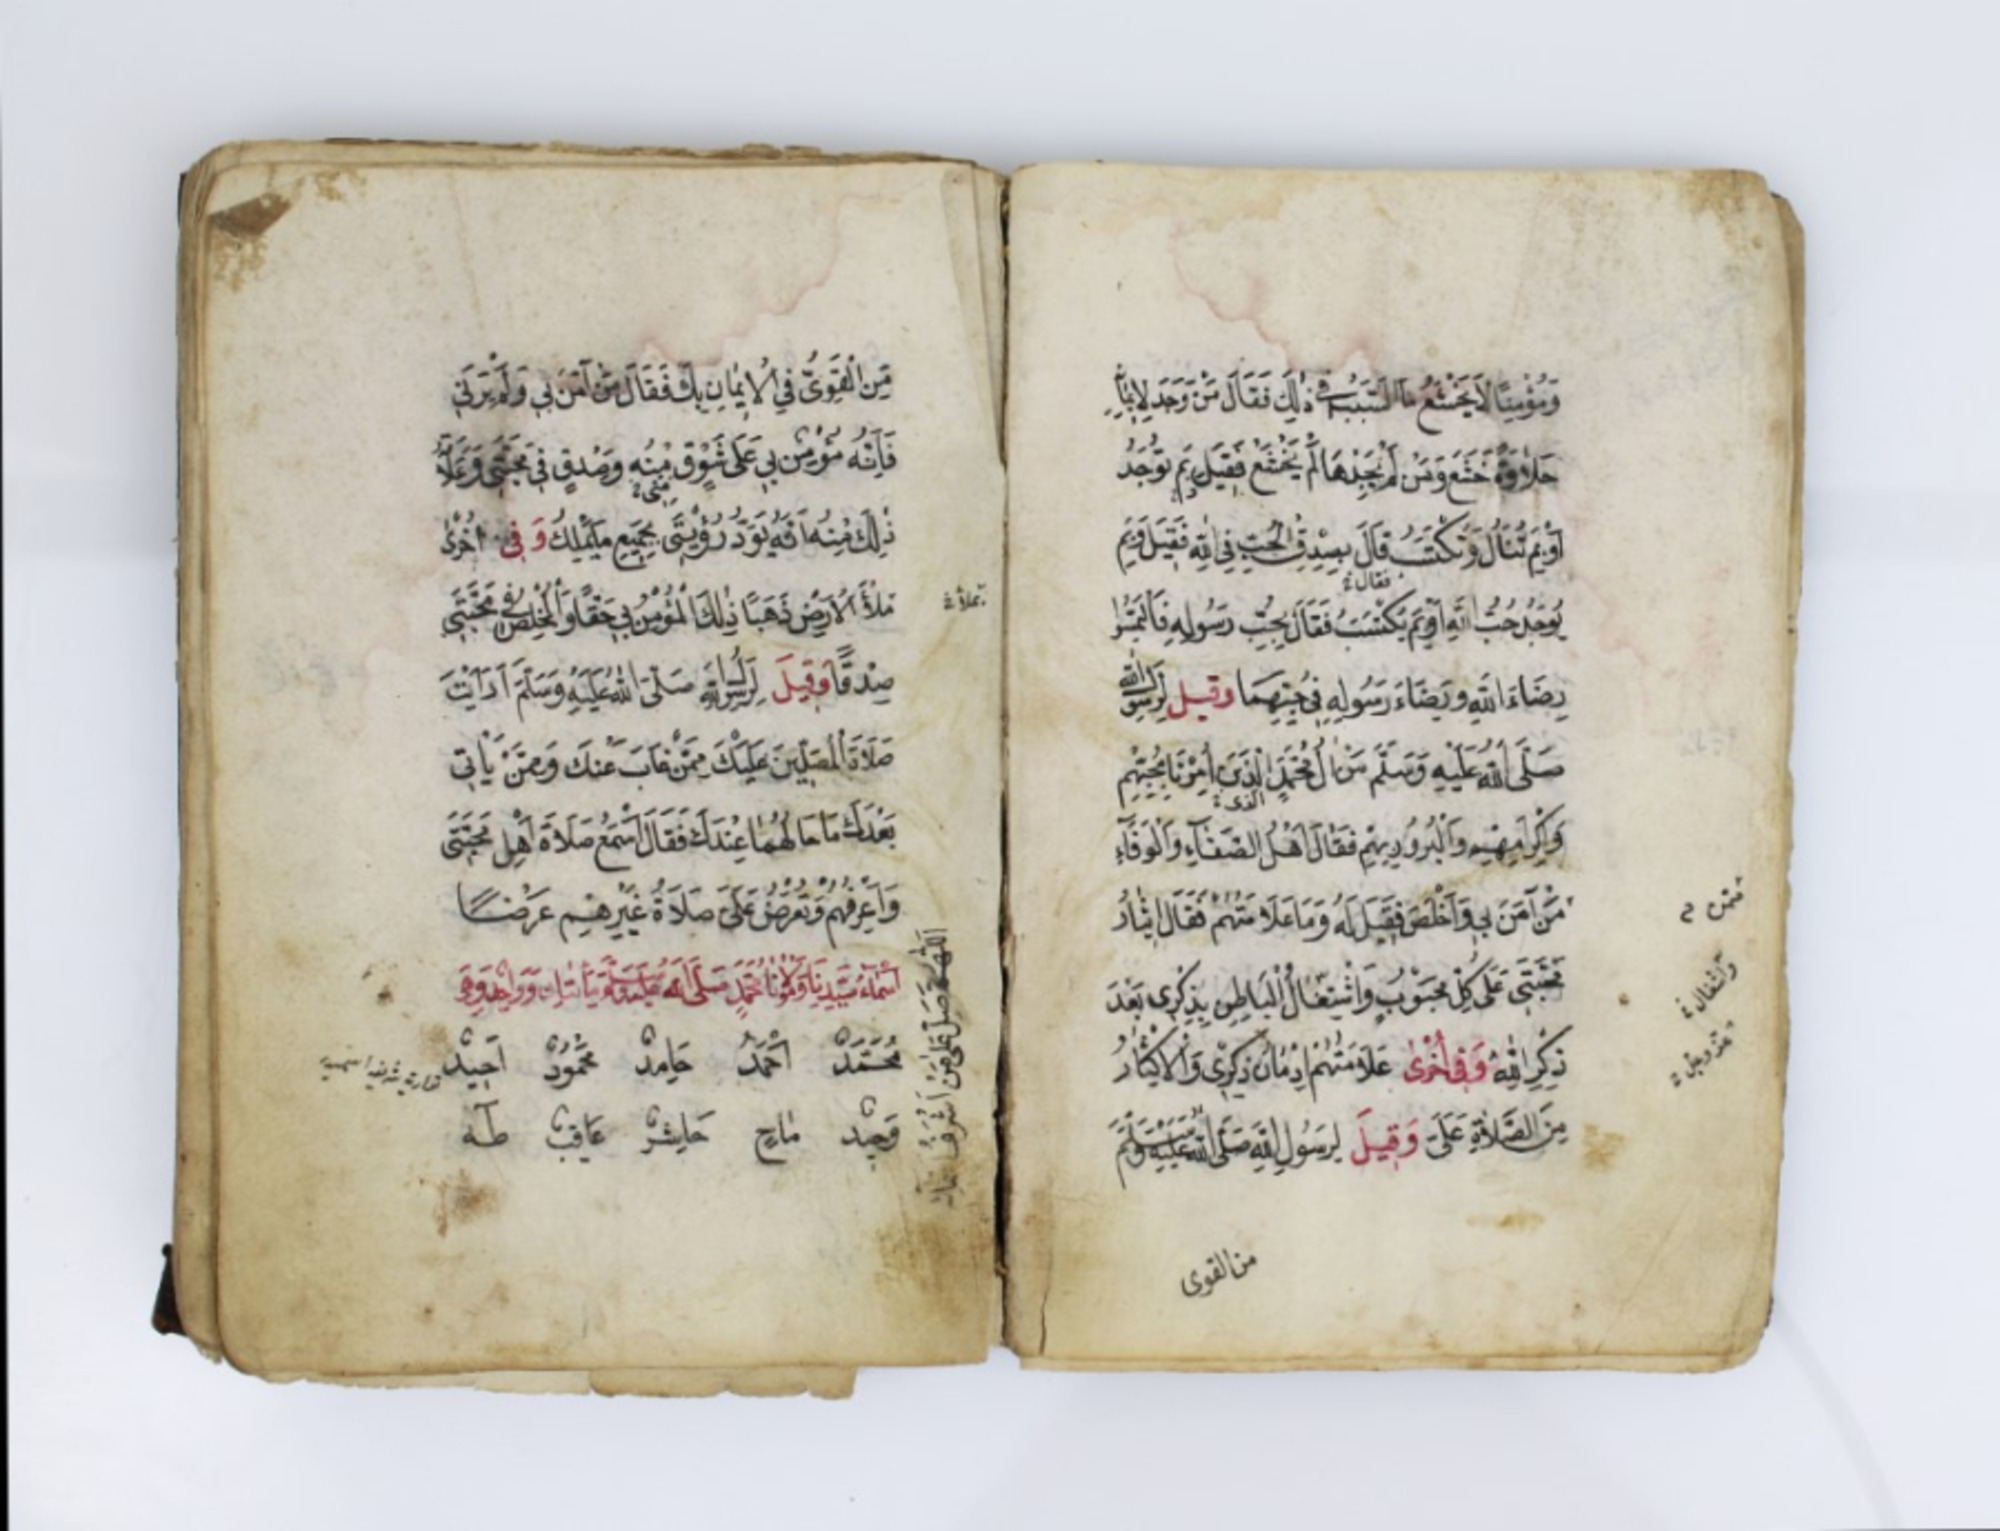 وَمُؤْمِنًا لَا يَخْشَعُ مَا السَّبَبُ فِي ذٰلِكَ فَقَالَ مَنْ وَجَدَ لِإِيمَانِهِ
حَلَاوَةً خَشَعَ وَمَنْ لَمْ يَجِدْهَا لَمْ يَخْشَعْ فَقِيلَ بِمَ تُوجَدُ
أَوْ بِمَ تُنَالُ وَتُكْتَسَبُ قَالَ بِصِدْقِ الْحُبِّ فِي اللهِ فَقِيلَ وَبِمَ
فقال
يُوجَدُ حُبُّ اللهِ أَوْ بِمَ يُكْتَسَبُ فَقَالَ بِحُبِّ رَسُولِهِ فَالْتَمِسُوا
رِضَاءَ اللهِ وَرِضَاءَ رَسُولِهِ فِي حُبِّهِمَا وَقِيلَ لِرَسُولِ اللهِ
صَلَّى اللهُ عَلَيْهِ وَسَلَّمَ مَنْ آلُ مُحَمَّدٍ الَّذِينَ أُمِرْنَا بِحُبِّهِمْ
الذى
وَإِكْرَامِهِمْ وَالْبُرُورِ بِهِمْ فَقَالَ أَهْلُ الصَّفَاءِ وَالْوَفَاءِ
مَنْ آمَنَ بِي وَأَخْلَصَ فَقِيلَ لَهُ وَمَا عَلَامَتُهُمْ فَقَالَ إِيثَارُ
مَحَبَّتِي عَلَى كُلِّ مَحْبُوبٍ وَاشْتِغَالُ الْبَاطِنِ بِذِكْرِي بَعْدَ
ذِكْرِ اللهِ وَفِي أُخْرَى عَلَامَتُهُمْ إِدْمَانُ ذِكْرِي وَالْإِكْثَارُ
مِنَ الصَّلَاةِ عَلَيَّ وَقِيلَ لِرَسُولِ اللهِ صَلَّى اللهُ عَلَيْهِ وَسَلَّمَ
من القوى
مَنِ الْقَوِيُّ فِي الْإِيمَانِ بِكَ فَقَالَ مَنْ آمَنَ بِي وَلَمْ يَرَنِي
فَإِنَّهُ مُؤْمِنٌ بِي عَلَى شَوْقٍ مِنْهُ وَصِدْقٍ فِي مَحَبَّتِي وَعَلَامَةُ
منى
ذٰلِكَ مِنْهُ أَنَّهُ يَوَدُّ رُؤْيَتِي بِجَمِيعِ مَا يَمْلِكُ وَفِي أُخْرَى
مِلْءَ الْأَرْضِ ذَهَبًا ذٰلِكَ الْمُؤْمِنُ بِي حَقًّا وَالْمُخْلِصُ فِي مَحَبَّتِي
بملأ
صِدْقًا وَقِيلَ لِرَسُولِ اللهِ صَلَّى اللهُ عَلَيْهِ وَسَلَّمَ أَرَأَيْتَ
صَلَاةَ الْمُصَلِّينَ عَلَيْكَ مِمَّنْ غَابَ عَنْكَ وَمِمَّنْ يَأْتِي
بَعْدَكَ مَا حَالُهُمَا عِنْدَكَ فَقَالَ أَسْمَعُ صَلَاةَ أَهْلِ مَحَبَّتِي
وَأَعْرِفُهُمْ وَتُعْرَضُ عَلَيَّ صَلَاةُ غَيْرِهِمْ عَرْضًا
أَسْمَاءُ سَيِّدِنَا وَمَوْلَانَا مُحَمَّدٍ صَلَّى اللهُ عَلَيْهِ وَسَلَّمَ مِائَتَانِ وَوَاحِدٌ وَهِيَ
مُحَمَّدٌ أَحْمَدُ حَامِدٌ مَحْمُودٌ أَحِيدٌ
وَحِيدٌ مَاحٍ حَاشِرٌ عَاقِبٌ طٰهٰ
اللهم صل على من اشرف